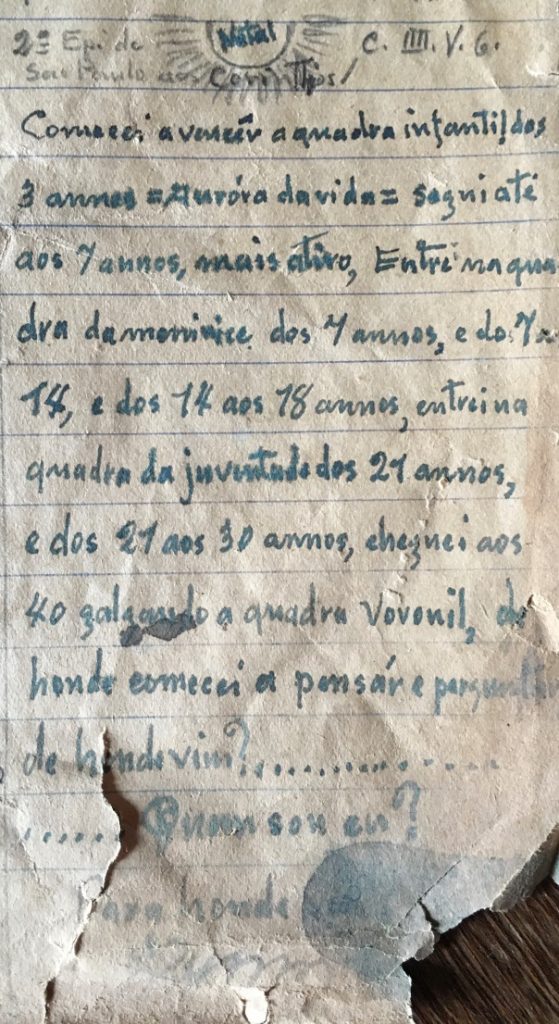 Natal
2ª Epi de C. IIII. V. 6.
Sao Paulo aos Corinthios/
Comecei a vencêr a quadra infantil dos
3 annos = Auróra da vida = segui até
aos 7 annos, mais ativo, Entrei na qua
dra da meninice dos 7 annos, e do 7 a
14, e dos 14 aos 18 annos, entrei na
quadra da juventude dos 21 annos,
e dos 21 aos 30 annos, cheguei aos
40 galgando a quadra Vovonil, de
honde comecei a pensár e
de honde vim?..............
...... Quem sou eu?
Para honde